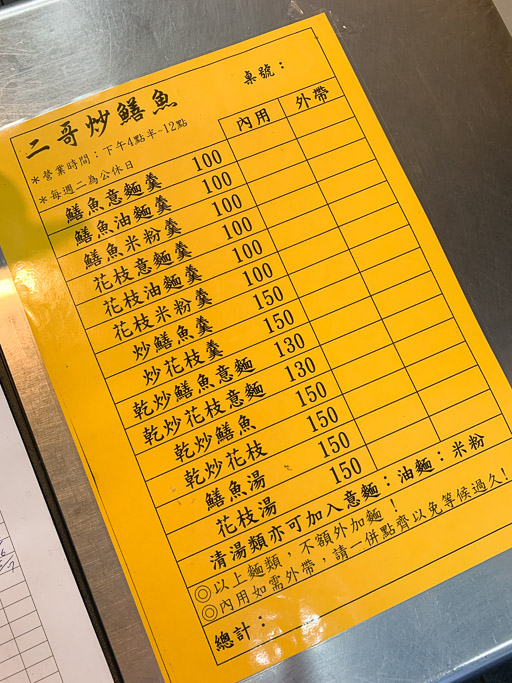 桌號：
二哥炒鱔魚
內用 外帶
＊營業時間：下午4點半~12點
＊每週二為公休日
鱔魚意麵羹 100
鱔魚油麵羹 100
鱔魚米粉羹 100
花枝意麵羹 100
花枝油麵羹 100
花枝米粉羹 100
炒鱔魚羹 150
炒花枝羹 150
乾炒鱔魚意麵 130
乾炒花枝意麵 130
乾炒鱔魚 150
乾炒花枝 150
鱔魚湯 150
花枝湯 150
清湯類亦可加入意麵：油麵：米粉
◎以上麵類，不額外加麵！
◎內用如需外帶，請一併點齊以免等候過久！
總計：